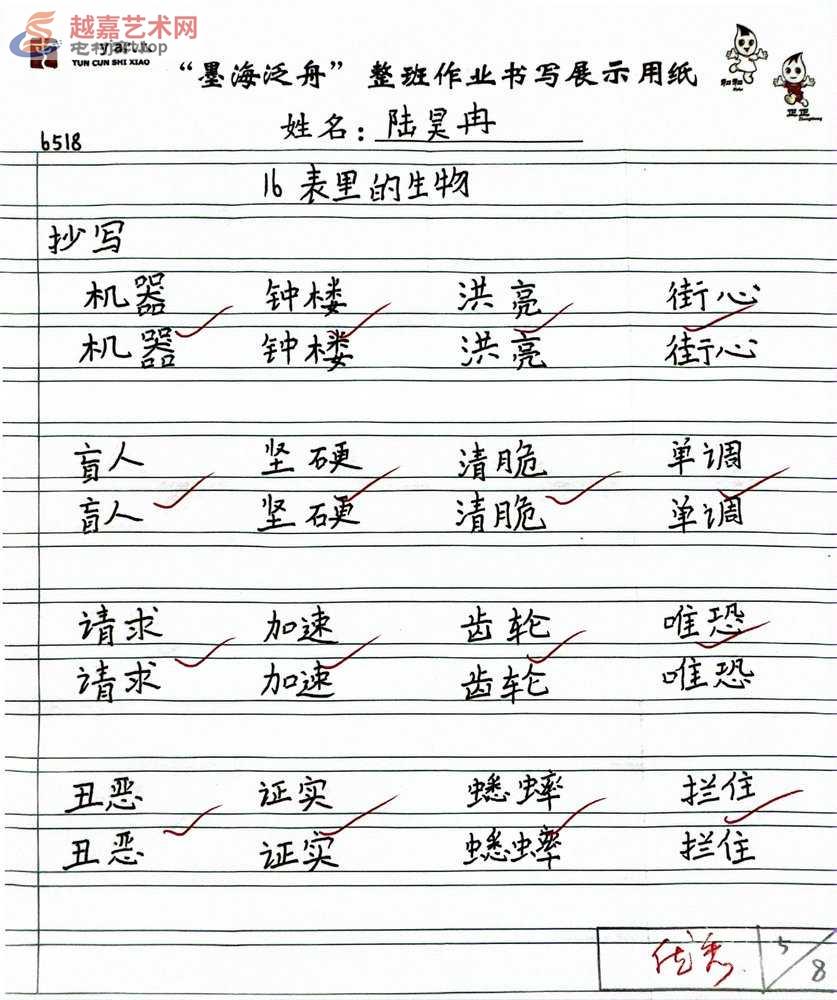 越嘉艺术网
TUN CUN SHI XIAO
“墨海泛舟”整班作业书写展示用纸
姓名：陆昊冉
6518
16 表里的生物
抄写
机器 钟楼 洪亮 街心
机器 钟楼 洪亮 街心
盲人 坚硬 清脆 单调
盲人 坚硬 清脆 单调
请求 加速 齿轮 唯恐
请求 加速 齿轮 唯恐
丑恶 证实 蟋蟀 拦住
丑恶 证实 蟋蟀 拦住
优秀 5/8